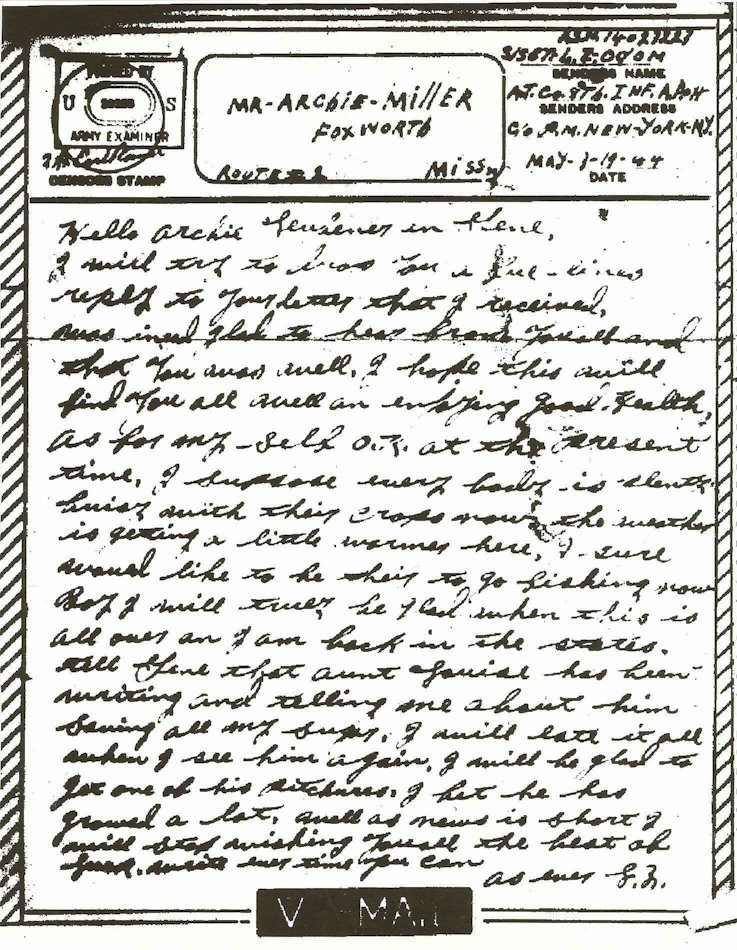 ASN 14027227
S/SGT. L. Z. Odom
SENDERS NAME
AT. Co. 8th. INF. A.P.O #4
SENDERS ADDRESS
C/o P.M. NEW-YORK-NY.
MAY-7-19-44
DATE
PASSED BY
U S
ARMY EXAMINER
CENSORS STAMP
MR-ARCHIE-MILLER
FOXWORTH
ROUTE # 2 MISS
Hello Archie in Gene,
I will try to drop you a few-lines
reply to your letter that I received,
was glad to hear from You all and
that You was well. I hope this will
find You all well an enjoying good-health,
as for my-self O.K. at the present
time, I suppose every body is plenty
buisy with their crops now, the weather
is geting a little warmer here, I sure
would like to be their to go fishing now
Boy I will truley be glad when this is
all over an I am back in the states.
tell Gene that aunt Louise has been
writing and telling me about him
Saving all my Surp, I will eate it all
when I see him again, I will be glad to
get one of his pitchures. I bet he has
growed a lot, well as news is short I
will stop wishing You all the best of
luck. write ever time you can
as ever L.Z.
V MAIL